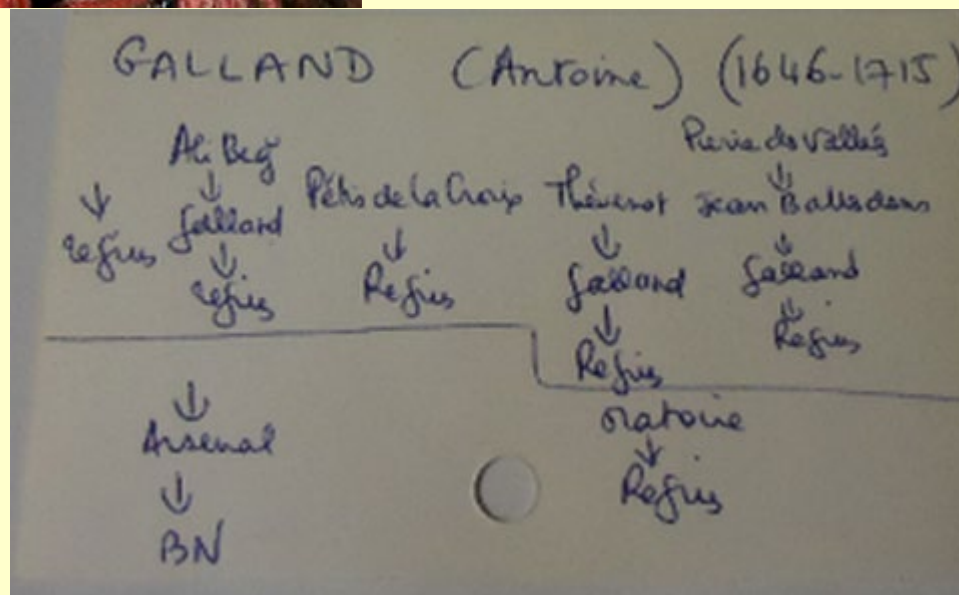 GALLAND (Antoine) (1646-1715)
↓
Regius
Ali Beg
↓
Galland
↓
Regius
Pétis de la Croix
↓
Regius
Thévenot
↓
Galland
↓
Regius
Pierre
↓
Jean Ballesdens
↓
Galland
↓
Regius
↓
Arsenal
↓
BN
Oratoire
↓
Regius